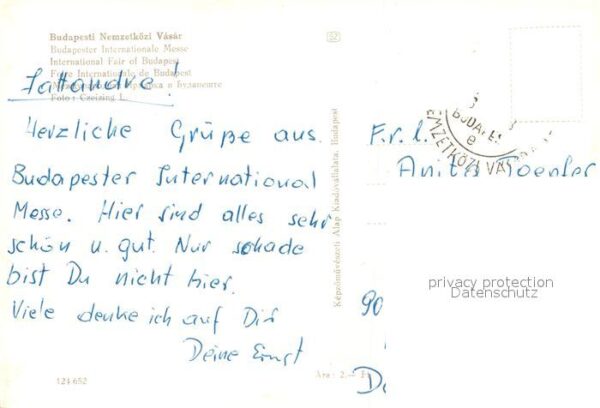 Budapesti Nemzetközi Vásár
Budapester Internationale Messe
International Fair of Budapest
Foire Internationale de Budapest
в Будапеште
Foto: Czeizing L.
Herzliche Grüße aus.
Budapester International
Messe. Hier sind alles sehr
schön u. gut. Nur schade
bist Du nicht hier.
Viele denke ich auf Dir
Deine Ernst
124 652
Ára: 2.— Ft
Képzőművészeti Alap Kiadóvállalata, Budapest
BUDAPEST
e
NEMZETKÖZI VÁSÁR
Frl.
Anita
privacy protection
Datenschutz
90